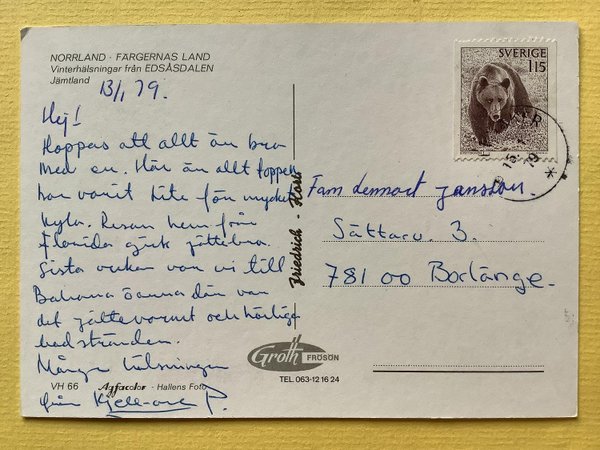 NORRLAND · FÄRGERNAS LAND
Vinterhälsningar från EDSÅSDALEN
Jämtland
13/1 79.
Hej!
Hoppas att allt är bra
med er. Här är allt toppen
har varit lite för mycket
kyla. Resan hem från
Florida gick jättebra.
Sista veckan var vi till
Bahama öarna där var
det jättevarmt och härliga
badstränder.
Många hälsningar
från Kjell-ove P.
VH 66 Agfacolor · Hallens Foto
Friedrich - Foto
Groth FRÖSÖN
TEL. 063-12 16 24
SVERIGE
115
15
79
Fam Lennart Jansson
Sättarv. 3.
781 00 Borlänge.